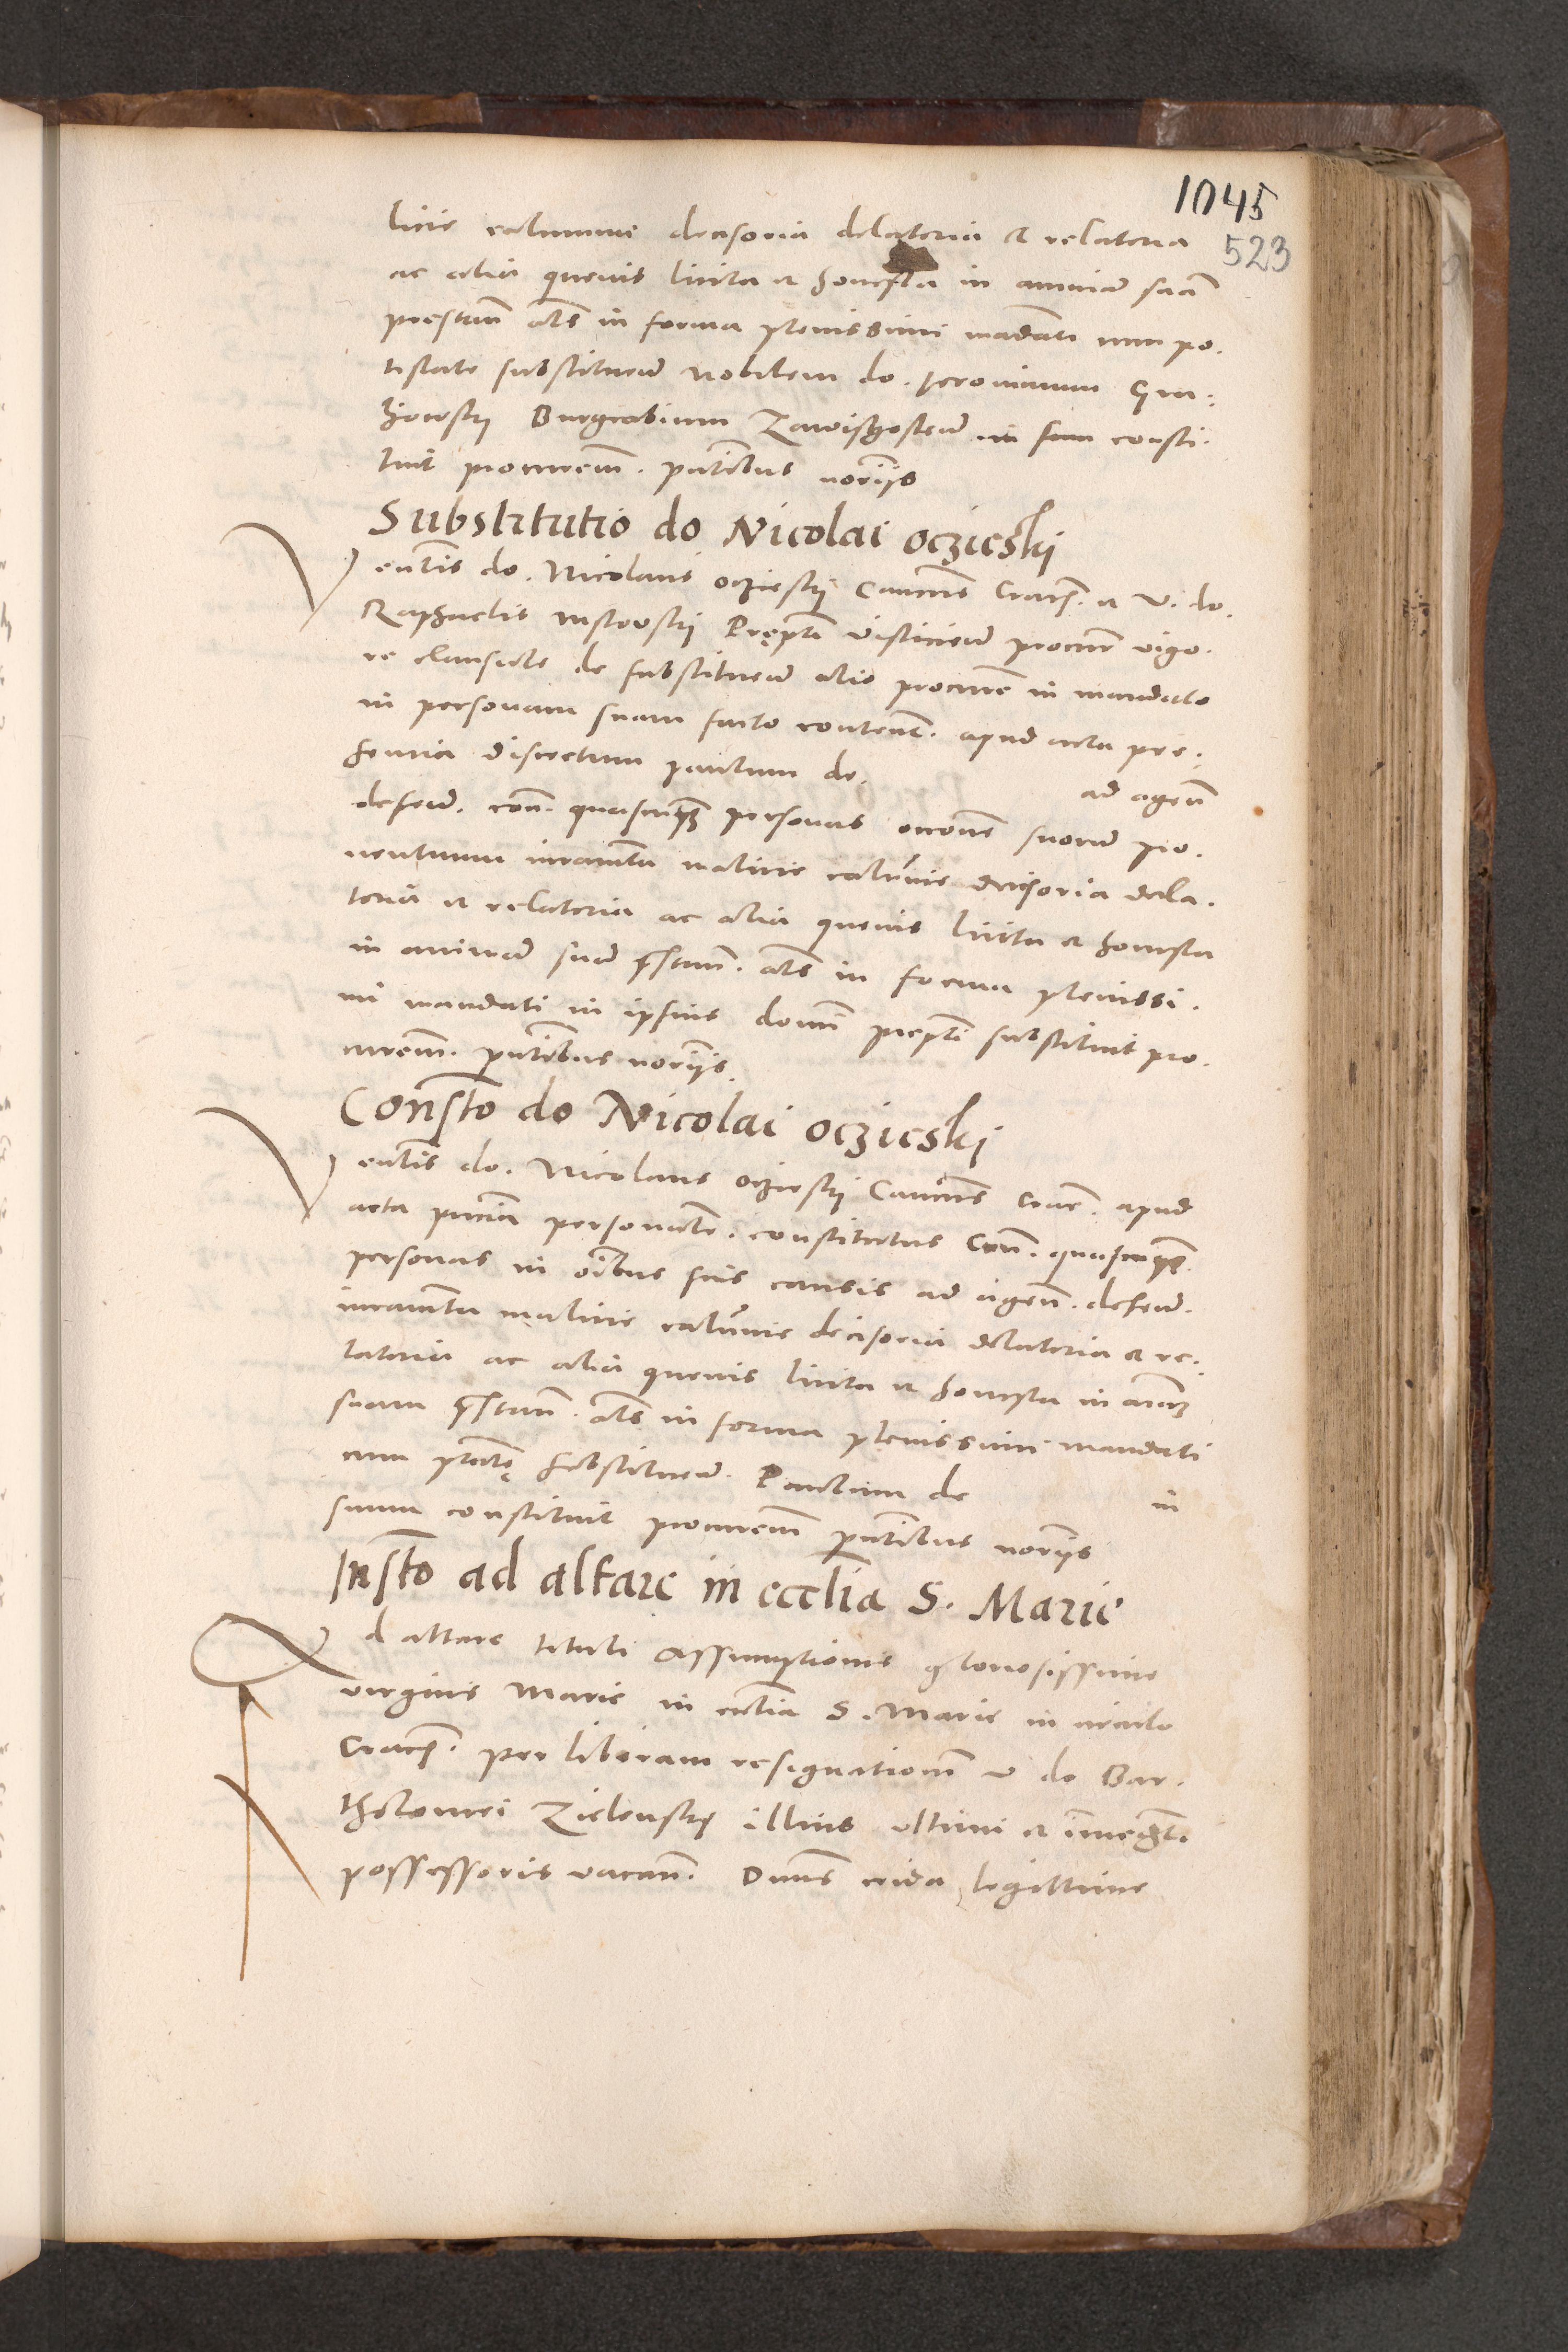 1045
523
licie calumnie decisoria delatoria et relatoria
ac alia quevis licita et honesta in animam suam
prestand. als in forma plenissimi mandati cum po.
testate substituend nobilem do. Jeronimum Gra:
howsky Burgrabium Zawischosten in suum consti.
tuit procurem. pntibus noriis
Substitutio do Nicolai oczieski
Ventis do. Nicolaus oczieskij Canonus Cracs. et V. do.
Raphaelis Prepti visticien procur vigo.
re clausule de substituend alio procure in mandato
in personam suam facto content. apud acta pre:
sentia discretum paulum de. ad agend
defend. con. quascumque personas occone suorum pro.
ventuum iuramenta malicie calumnie decisoria dela.
toria et relatoria ac alia quevis licita et honesta
in animam suam prestand. als in forma plenissi.
mi mandati in ipsius domni prepti substituit pro.
curem. pntibus noriis.
Consto do Nicolai oczieski
Ventis do. Nicolaus oczieskij Canonus Crac. apud
acta pncia personalr. constitutus Con. quascumque
personas in oibus suis causis ad agend. defend.
iuramta malicie calumnie decisoria delatoria et re:
latoria ac alia quevis licita et honesta in aiam
suam prestand. als in forma plenissimi mandati
cum ptate substituend. Paulum de in
suum constituit procurem pntibus noriis
Insto ad altare in ecclia S. Marie
Ad altare tituli Assumptionis gloriosissime
virginis Marie in ecclia S. Marie in circulo
Cracs. per liberam resignationem v do Bar.
tholomei Zielensky illius ultimi et immediat.
possessoris vacand. Domnus crida legittime